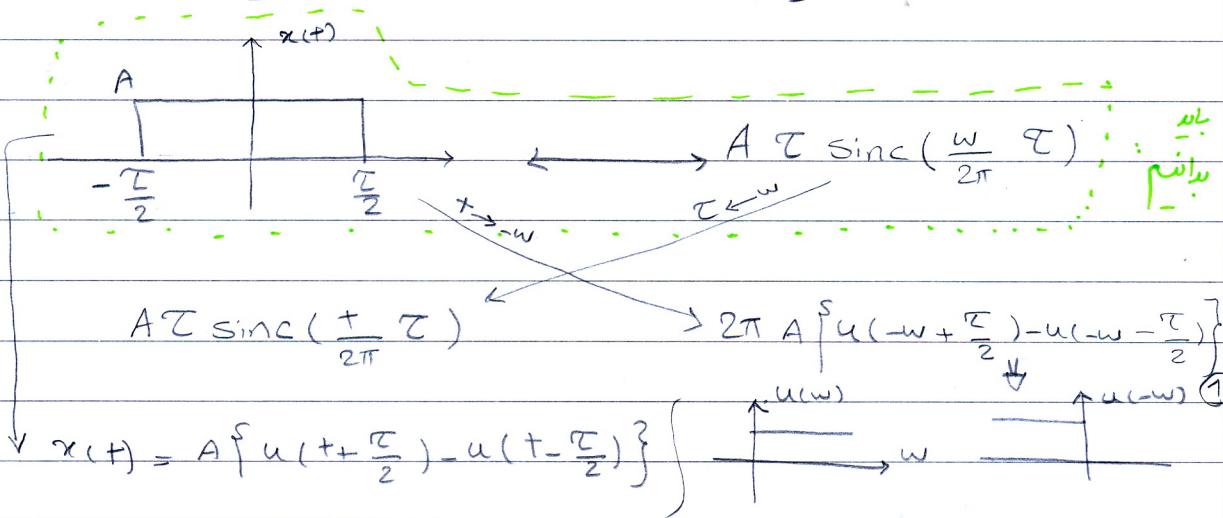 x(t)
A
-τ/2 τ/2
A τ sinc(ω/2π τ)
باید
بدانیم :
t → -ω
τ ← ω
Aτ sinc(t/2π τ)
2π A {u(-ω + τ/2) - u(-ω - τ/2)}
⇓
①
x(t) = A {u(t + τ/2) - u(t - τ/2)}
u(ω)
ω
u(-ω)